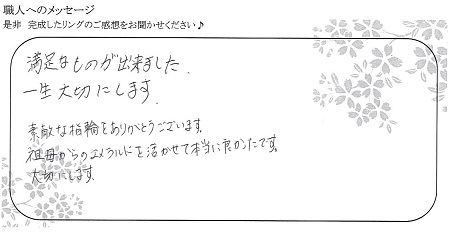 職人へのメッセージ
是非 完成したリングのご感想をお聞かせください♪
満足なものが出来ました.
一生大切にします.
素敵な指輪をありがとうございます.
祖母からのエメラルドを活かせて本当に良かったです.
大切にします.